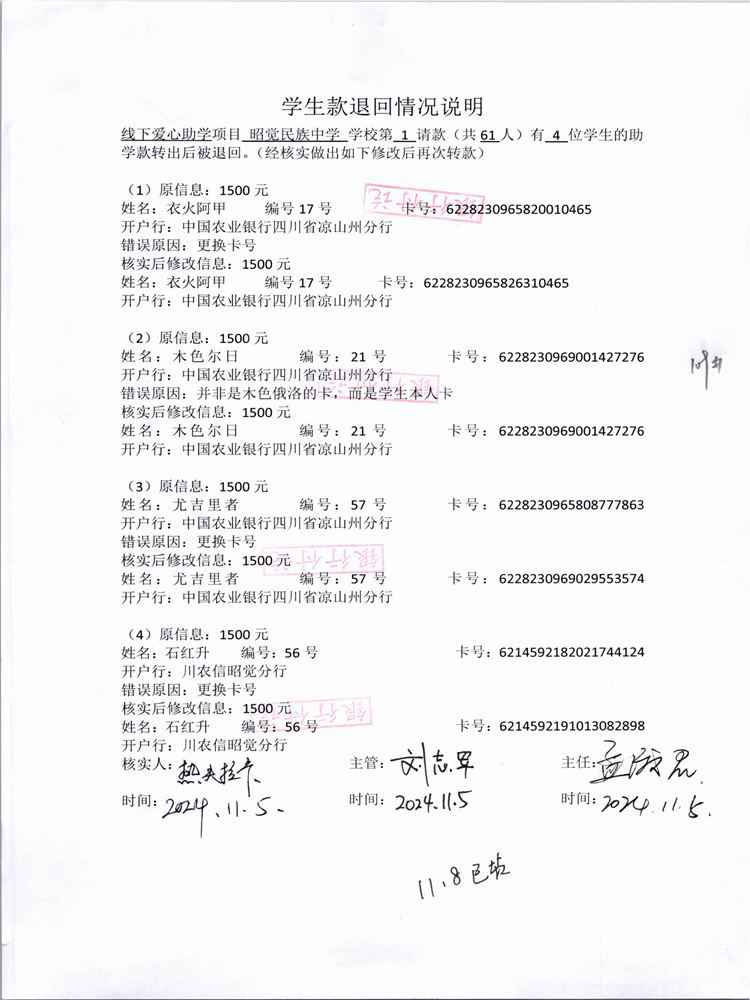 学生款退回情况说明
线下爱心助学项目 昭觉民族中学 学校第 1 请款（共 61 人）有 4 位学生的助
学款转出后被退回。（经核实做出如下修改后再次转款）
（1）原信息：1500 元
姓名：衣火阿甲 编号 17 号 卡号：6228230965820010465
开户行：中国农业银行四川省凉山州分行
错误原因：更换卡号
核实后修改信息：1500 元
姓名：衣火阿甲 编号 17 号 卡号：6228230965826310465
开户行：中国农业银行四川省凉山州分行
（2）原信息：1500 元
姓名：木色尔日 编号：21 号 卡号：6228230969001427276
开户行：中国农业银行四川省凉山州分行
错误原因：并非是木色俄洛的卡，而是学生本人卡
核实后修改信息：1500 元
姓名：木色尔日 编号：21 号 卡号：6228230969001427276
开户行：中国农业银行四川省凉山州分行
（3）原信息：1500 元
姓名：尤吉里者 编号：57 号 卡号：6228230965808777863
开户行：中国农业银行四川省凉山州分行
错误原因：更换卡号
核实后修改信息：1500 元
姓名：尤吉里者 编号：57 号 卡号：6228230969029553574
开户行：中国农业银行四川省凉山州分行
（4）原信息：1500 元
姓名：石红升 编号：56 号 卡号：6214592182021744124
开户行：川农信昭觉分行
错误原因：更换卡号
核实后修改信息：1500 元
姓名：石红升 编号：56 号 卡号：6214592191013082898
开户行：川农信昭觉分行
核实人： 主管：刘志军 主任：
时间：2024.11.5. 时间：2024.11.5 时间：2024.11.5.
11.8 已